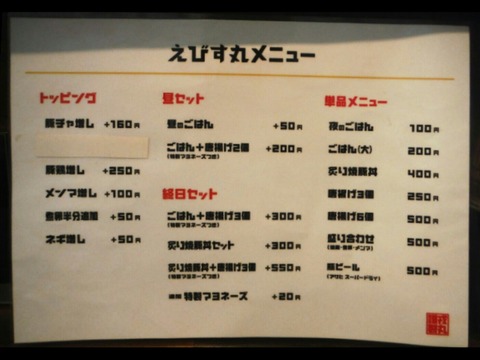 えびす丸メニュー
トッピング
豚チャ増し +160円
豚鶏増し +250円
メンマ増し +100円
半分追加 +50円
ネギ増し +50円
昼セット
昼のごはん +50円
ごはん+唐揚げ2個 +200円
(特製マヨネーズつき)
終日セット
ごはん+唐揚げ3個 +300円
(特製マヨネーズつき)
炙り焼豚丼セット +300円
炙り焼豚丼+唐揚げ3個 +550円
(特製マヨネーズつき)
追加 特製マヨネーズ +20円
単品メニュー
夜のごはん 100円
ごはん(大) 200円
炙り焼豚丼 400円
唐揚げ3個 250円
唐揚げ6個 500円
盛り合わせ 500円
・メンマ)
瓶ビール 500円
(アサヒ スーパードライ)